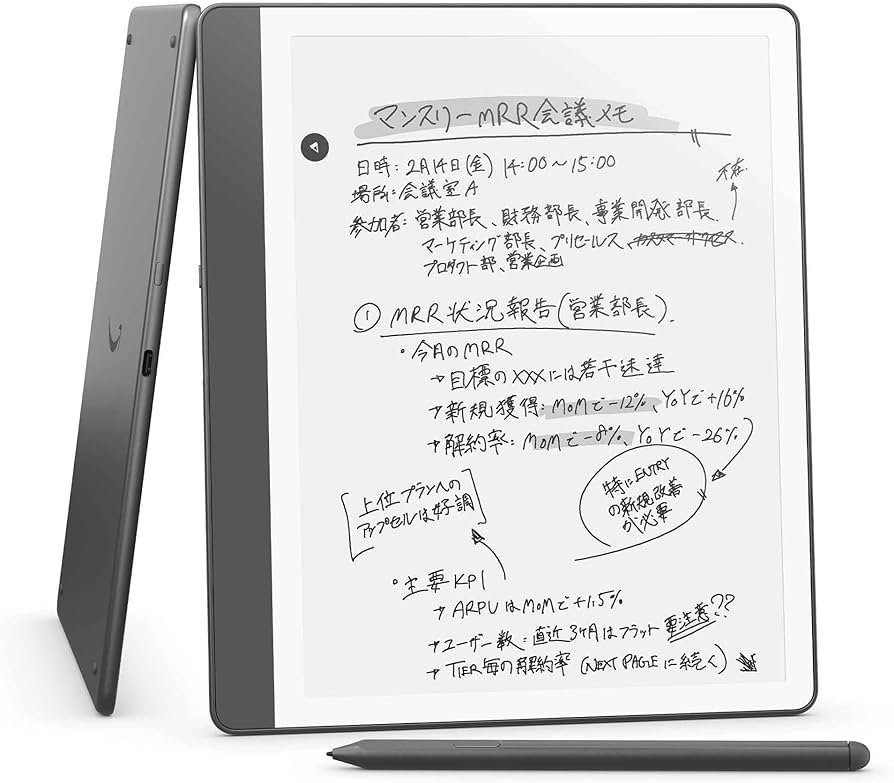 マンスリーMRR会議メモ
日時：2月14日(金) 14:00〜15:00
場所：会議室A
不在
参加者：営業部長、財務部長、事業開発部長
マーケティング部長、プリセールス、カスタマーサクセス
プロダクト部、営業企画
① MRR状況報告(営業部長)
・今月のMRR
→目標のXXXには若干未達
→新規獲得：MoMで-12%、YoYで+16%
→解約率：MoMで-8%、YoYで-26%
特にENTRY
の新規改善
が必要
[上位プランへの
アップセルは好調]
・主要KPI
→ARPUはMoMで+1.5%
→ユーザー数：直近3ヶ月はフラット 要注意??
→TIER毎の解約率 (NEXT PAGEに続く)